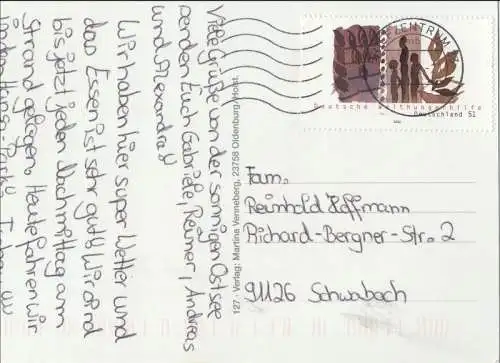 Viele Grüße von der sonnigen Ostsee
senden Euch Gabriele, Reiner, Andreas
und Alexandra!!
Wir haben hier super Wetter und
das Essen ist sehr gut!! Wir sind
bis jetzt jeden Nachmittag am
Strand gelegen. Heute fahren wir
in den Hansa-Park.
127 · Verlag: Martina Venneberg, 23758 Oldenburg/Holst.
BRIEFZENTRUM
Deutsche Welthungerhilfe
Deutschland 51
Fam.
Reinhold Hoffmann
Richard-Bergner-Str. 2
91126 Schwabach